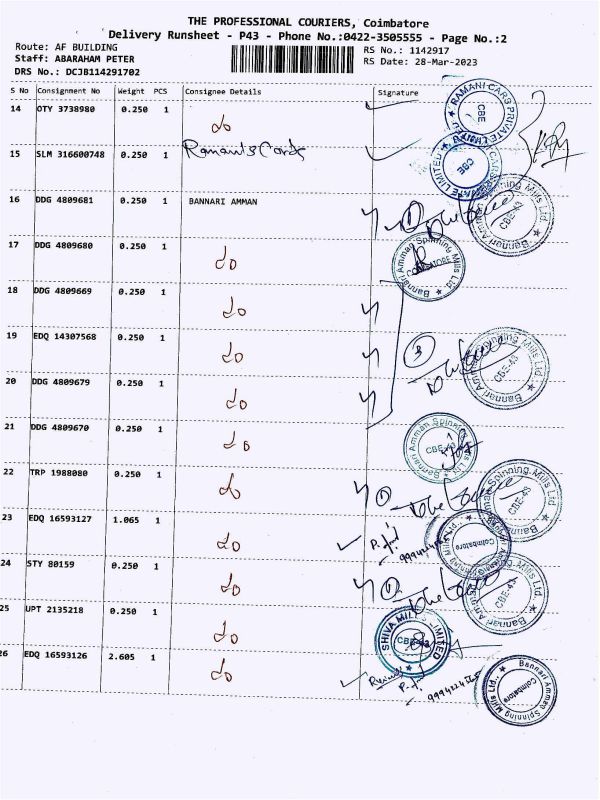 THE PROFESSIONAL COURIERS, Coimbatore
Delivery Runsheet - P43 - Phone No.:0422-3505555 - Page No.:2
Route: AF BUILDING
RS No.: 1142917
Staff: ABARAHAM PETER
RS Date: 28-Mar-2023
DRS No.: DCJB114291702
S No Consignment No Weight PCS Consignee Details Signature
14 OTY 3738980 0.250 1 do
RAMANI CARS PRIVATE LIMITED CBE
15 SLM 316600748 0.250 1 Ramani's Cards
CBE
16 DDG 4809681 0.250 1 BANNARI AMMAN
Bannari Amman Spinning Mills Ltd. CBE-43
17 DDG 4809680 0.250 1 do
Bannari Amman Spinning Mills Ltd COIMBATORE
18 DDG 4809669 0.250 1 do
19 EDQ 14307568 0.250 1 do
3
Bannari Amman Spinning Mills Ltd. CBE-43
20 DDG 4809679 0.250 1 do
21 DDG 4809670 0.250 1 do
Bannari Amman Spinning Mills Ltd CBE-43
22 TRP 1988080 0.250 1 do
Bannari Amman Spinning Mills Ltd. CBE-43
23 EDQ 16593127 1.065 1 do
Bannari Amman Spinning Mills Ltd., Coimbatore
24 STY 80159 0.250 1 do
Bannari Amman Spinning Mills Ltd. CBE-43
25 UPT 2135218 0.250 1 do
SHIVA MILLS LIMITED CBE-43
26 EDQ 16593126 2.605 1 do
Bannari Amman Spinning Mills Ltd., Coimbatore